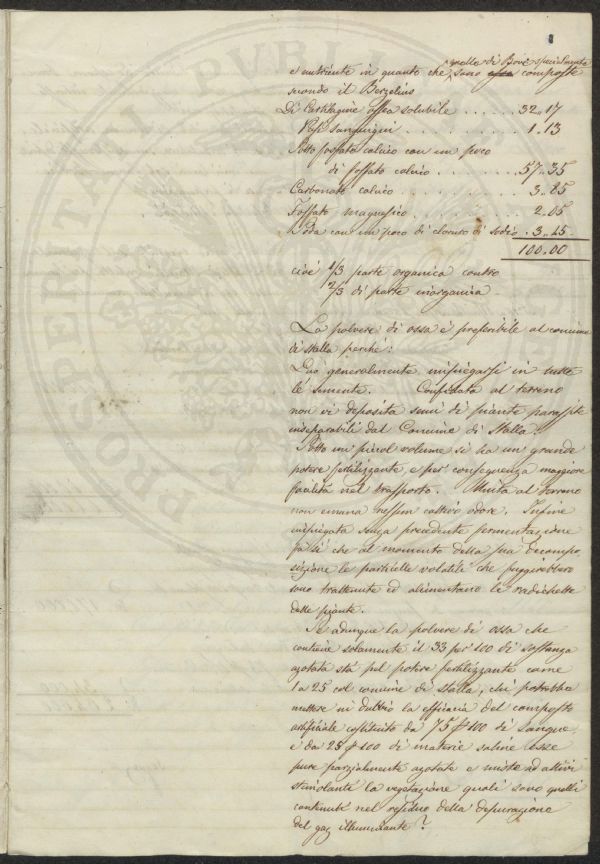 quelle di Bove specialmente
e nutriente in quanto che sono composte
secondo il Berzelius
Di Cartilagine ossea solubile . . . . . . 32.17
Vasi sanguigni . . . . . . . . . 1.13
Sotto fosfato calcico con un poco
di fossato calcico . . . . . . . 57.35
Carbonato calcico . . . . . . . . 3.85
Fosfato magnesico . . . . . . . . 2.05
Soda con un poco di cloruro di sodio . 3.45
100.00
cioé 1/3 parte organica contro
2/3 di parte inorganica
La polvere di ossa é preferibile al concime
di stalla perché:
Può generalmente impiegarsi in tutte
le semente. Confidata al terreno
non vi deposita semi di piante parassite
inseparabili dal Concime di Stalla.
Sotto un piccol volume si ha un grande
potere fertilizzante e per conseguenza maggiore
facilità nel trasporto. Unita al terreno
non emana nessun cattivo odore. Infine
impiegata senza precedente fermentazione
fa si che al momento della sua decompo
sizione le particelle volatili che fuggirebbero
sono trattenute ed alimentano le radichette
delle piante.
Se adunque la polvere di ossa che
contiene solamente il 33 per 100 di sostanza
azotata stà pel potere fertilizzante come
1 a 25 col concime di stalla, chi potrebbe
mettere in dubbio la efficacia del composto
artificiale costituito da 75 p 100 di Sangue
e da 25 p 100 di materie saline esse
pure parzialmente azotate e miste ad attivi
stimolanti la vegetazione quali sono quelli
contenuti nel residuo della depurazione
del gaz illuminante?